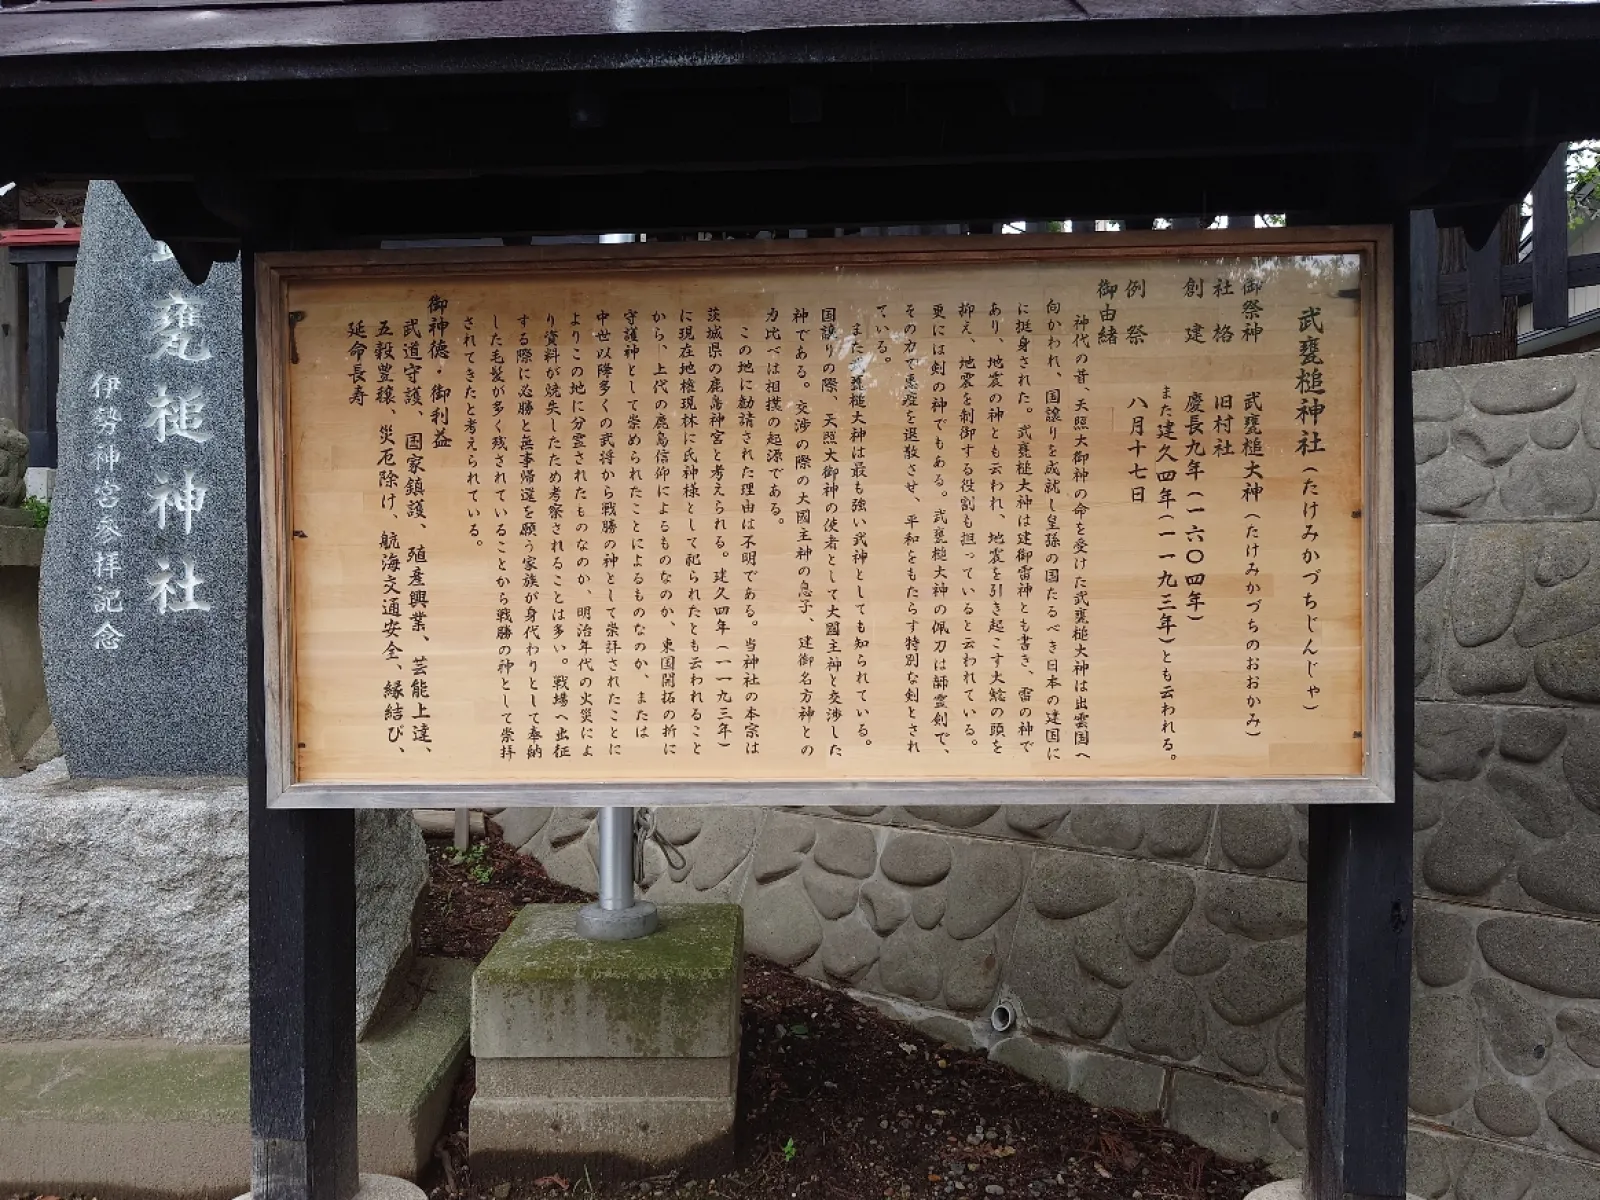 武甕槌神社(たけみかづちじんじゃ)
御祭神 武甕槌大神(たけみかづちのおおかみ)
社格 旧村社
創建 慶長九年(一六〇四年)
また建久四年(一一九三年)とも云われる。
例祭 八月十七日
御由緒
神代の昔、天照大御神の命を受けた武甕槌大神は出雲国へ
向かわれ、国譲りを成就し皇孫の国たるべき日本の建国に
に挺身された。武甕槌大神は建御雷神とも書き、雷の神で
あり、地震の神とも云われ、地震を引き起こす大鯰の頭を
抑え、地震を制御する役割も担っていると云われている。
更には剣の神でもある。武甕槌大神の佩刀は師霊剣で、
その力で悪疫を退散させ、平和をもたらす特別な剣とされ
ている。
また武甕槌大神は最も強い武神としても知られている。
国譲りの際、天照大御神の使者として大國主神と交渉した
神である。交渉の際の大國主神の息子、建御名方神との
力比べは相撲の起源である。
この地に勧請された理由は不明である。当神社の本宗は
茨城県の鹿島神宮と考えられる。建久四年(一一九三年)
に現在地権現林に氏神様として祀られたとも云われること
から、上代の鹿島信仰によるものなのか、東国開拓の折に
守護神として崇められたことによるものなのか、または
中世以降多くの武将から戦勝の神として崇拝されたことに
よりこの地に分霊されたものなのか、明治年代の火災によ
り資料が焼失したため考察されることは多い。戦場へ出征
する際に必勝と無事帰還を願う家族が身代わりとして奉納
した毛髪が多く残されていることから戦勝の神として崇拝
されてきたと考えられている。
御神徳・御利益
武道守護、国家鎮護、殖産興業、芸能上達、
五穀豊穣、災厄除け、航海交通安全、縁結び、
延命長寿
甕槌神社
伊勢神宮参拝記念